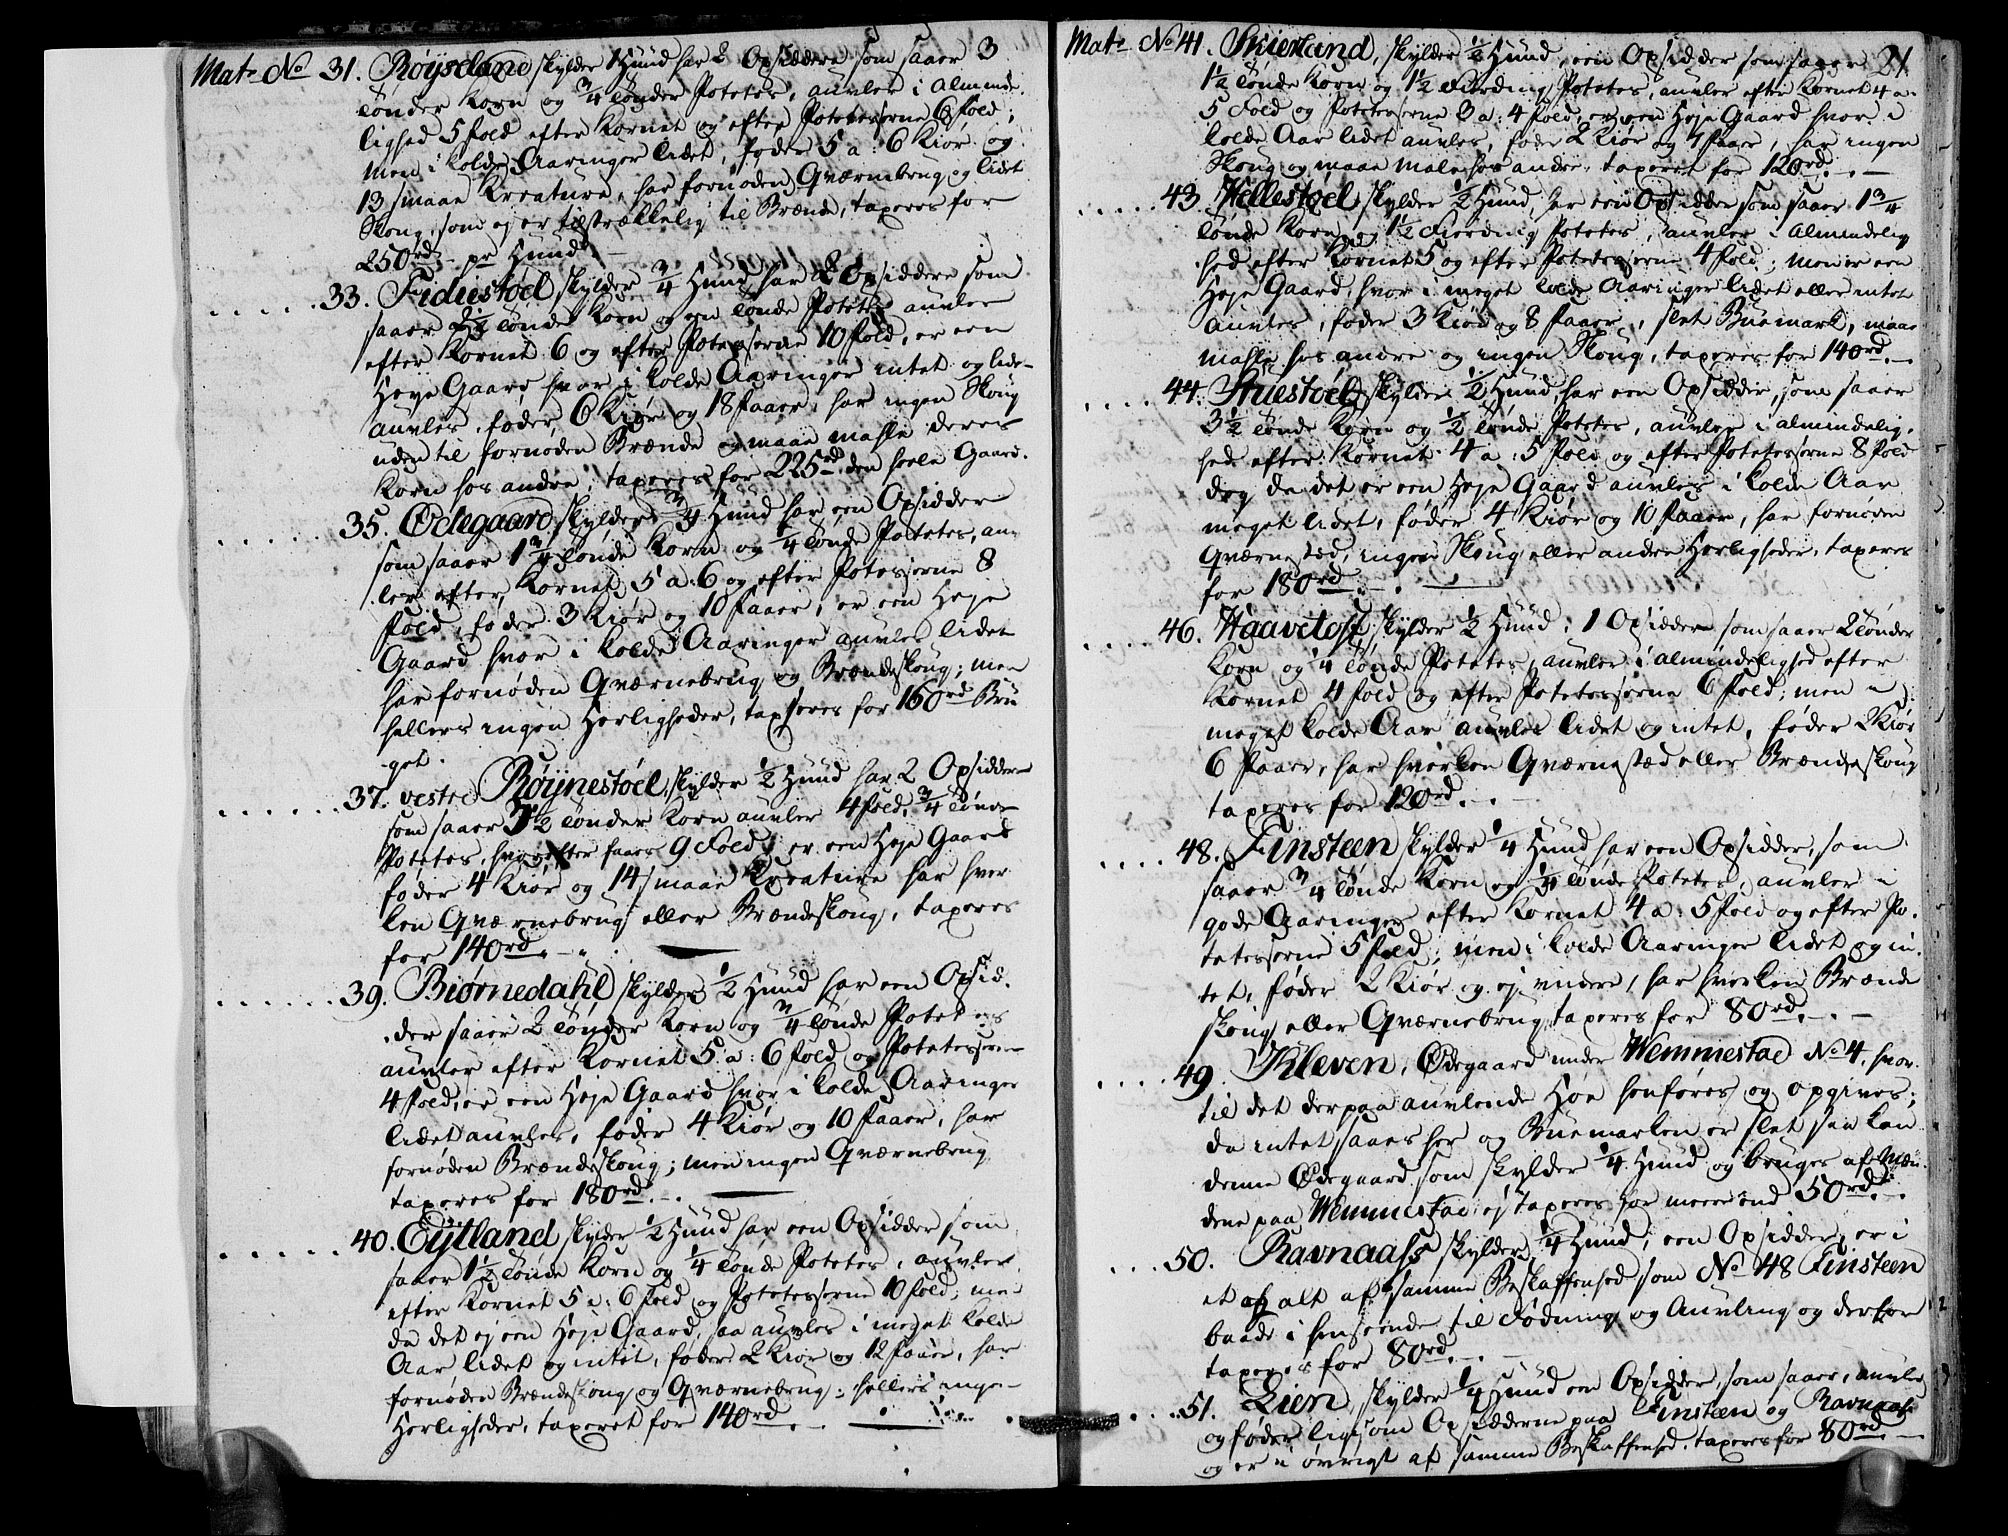 Mats No 31. Røysland skylder 1 Hund har 2 Opsiddere som saaer 3
tønder Korn og 3/4 tønder Potetes, auvler i Alminde
lighed 5 fold efter Kornet og efter Potetesserne 8 fold,
men i kolde Aaringer lidet, føder 5 a: 6 Kiør og
13 smaae Kreature, har fornøden Qværnebrug og lidet
Skoug, som ej er tilstrækkelig til Brænde, taxeres for
250rd pr Hund.
33. Fidiestøel skylder 3/4 Hund har 2 Opsiddere som
saaer tønder Korn og een tønde Potetes auvler
efter Kornet 6 og efter Potetesserne 10 fold, er een
Høye Gaard hvor i kolde Aaringer intet og lidet
auvles, føder 6 Kiør og 18 faaer, har ingen Skoug
uden til fornøden Brænde og maae mahle deres
Korn hos andre, taxeres for 225rd den heele Gaard.
35. Ødegaard skylder 3/4 Hund har een Opsidder
som saaer 1 3/4 tønde Korn og 1/4 tønde Potetes, auv
ler efter Kornet 5 a: 6 og efter Potesserne 8
fold, føder 3 Kiør og 10 faaer, er een Høje
Gaard hvor i kolde Aaringer auvles lidet
har fornøden Qværnebrug og Brændeskoug; men
hellers ingen Herligheder, taxseres for 160rd Bru
get.
37. vestre Røynestøel, skylder 1/2 Hund har 2 Opsiddere
som saaer 3 1/2 tønder Korn auvler 4 fold, 3/4 tønde
Potetes, hvorefter faaes 9 Fold; er een Høje Gaard
føder 4 Kiør og 14 smaae Kreature har hver
ken Qværnebrug eller Brændeskoug, taxeres
for 140rd.
39. Biørnedahl skylder 1/2 Hund har een Opsid.
der saaer 2 tønder Korn og 3/4 tønde Potetes
auvler efter Kornet 5 a: 6 fold og Potetesserne
4 fold, er een Høje Gaard hvor i kolde Aaringer
lidet auvles, føder 4 Kiør og 10 faaer, har
fornøden Brændeskoug; men ingen Qværnebrug
taxeres for 180rd.
40. Eytland skylder 1/2 Hund har een Opsidder som
saaer 1 1/2 tønde Korn og 1/4 tønde Potetes, auvler
efter Kornet 5 a: 6 fold og Potetesserne 10 fold, men
da det ej een Høje Gaard, saa auvles i meget kolde
Aar lidet og intet, føder 2 Kiør og 12 faaer, har
fornøden Brændeskoug og Qværnebrug; hellers ingen
Herligheder, taxeret for 140rd.
21
Mats No 41. Skierland, skylder 1/2 Hund, een Opsidder som saaer
1 1/2 tønde Korn og 1 1/2 Fierding Potetes, auvler efter Kornet 4 a:
5 Fold og Potetesserne 3 a: 4 fold, er een Høje Gaard hvor i
kolde Aar lidet auvles, føder 2 Kiør og 7 faaer, har ingen
Skoug og maae male hos andre, taxeret for 120rd.
43. Hellestøel skylder 1/2 Hund, har een Opsidder som saaer 1 3/4
tønde Korn og 1 1/2 Fierding Potetes, auvler i Almindelig
hed efter Kornet 5 og efter Potetesserne 4 fold; men er een
Høje Gaard, hvor i meget kolde Aaringer lidet eller intet
auvles, føder 3 Kiør og 8 faaer, slet Buemark, maae
mahle hos andre og ingen Skoug, taxeres for 140rd.
44. Stiestøel, skylder 1/2 Hund, har een Opsidder, som saaer
3 1/2 tønde Korn og 1/2 tønde Potetes, auvler i almindelig,
hed efter Kornet 4 a: 5 fold og efter Potetesserne 8 fold
dog da det er een Høje Gaard auvles i kolde Aar
meget lidet, føder 4 Kiør og 10 faaer, har fornøden
Qværnestæd, ingen Skoug eller andre Herligheder, taxeres
for 180rd.
46. Haavetoft, skylder 1/2 Hund, 1 Opsiddere som saaer 2 tønder
Korn og 1/4 tønde Potetes, auvler i almindelighed efter
Kornet 4 fold og efter Potetesserne 6 fold; men i
meget kolde Aar auvles lidet og intet, føder 2 Kiør
6 faaer, har hverken Qværnestæd eller Brændeskoug
taxeres for 120rd.
48. Finsteen skylder 1/4 Hund har een Opsidder, som
saaer 3/4 tønde Korn og 1/4 tønde Potetes, auvler i
gode Aaringer efter Kornet 4 a: 5 fold og efter Po.
tetesserne 5 fold; men i kolde Aaringer lidet og in
tet, føder 2 Kiør og ej videre, har hverken Brænde
skoug eller Qværnebrug, taxeres for 80rd.
49. Kleven, Ødegaard under Wemmestad No 4. hvor
til det derpaa auvlende Høe henføres og opgives;
da intet saaes her og Buemarken er slet saa kan
denne Ødegaard, som skylder 1/4 Hund og bruges af Mæn.
dene paa Wemmestad ej taxeres for meere end 50rd.
50. Ravnaass skylder 1/4 Hund, een Opsidder, er i
et og alt af samme Beskaffenhed som No 48 Finsteen
baade i henseende til Fødning og Auvling og derfor
taxeres for 80rd.
51. Lien, skylder 1/4 Hund een Opsidder, som saaer, auvler
og føder ligesom Opsidderne paa Finsteen og Ravnaas
og er i øvrigt af samme Beskaffenhed, taxeres for 80rd.